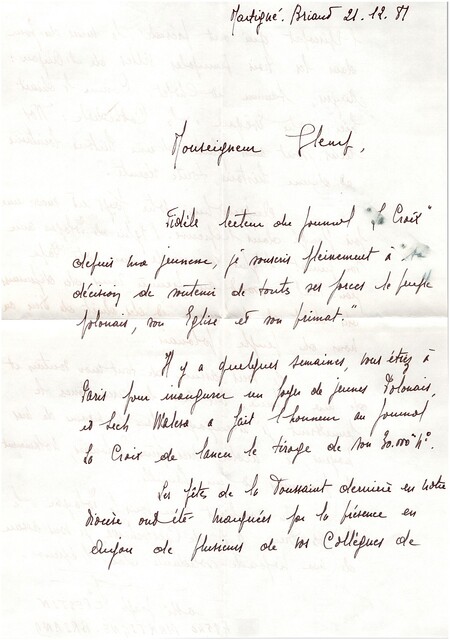 Martigné-Briand 21.12.81
Monseigneur Glemp,
Fidèle lecteur du journal "La Croix"
depuis ma jeunesse, je souscris pleinement à "la
décision de soutenir de toutes ses forces le peuple
polonais, son Eglise et son primat."
Il y a quelques semaines, vous étiez à
Paris pour inaugurer un foyer de jeunes Polonais,
et Lech Walesa a fait l'honneur au journal
La Croix de lancer le tirage de son 30.000e N°.
Les fêtes de la Toussaint dernière en notre
diocèse ont été marquées par la présence en
Anjou de plusieurs de vos Collègues de